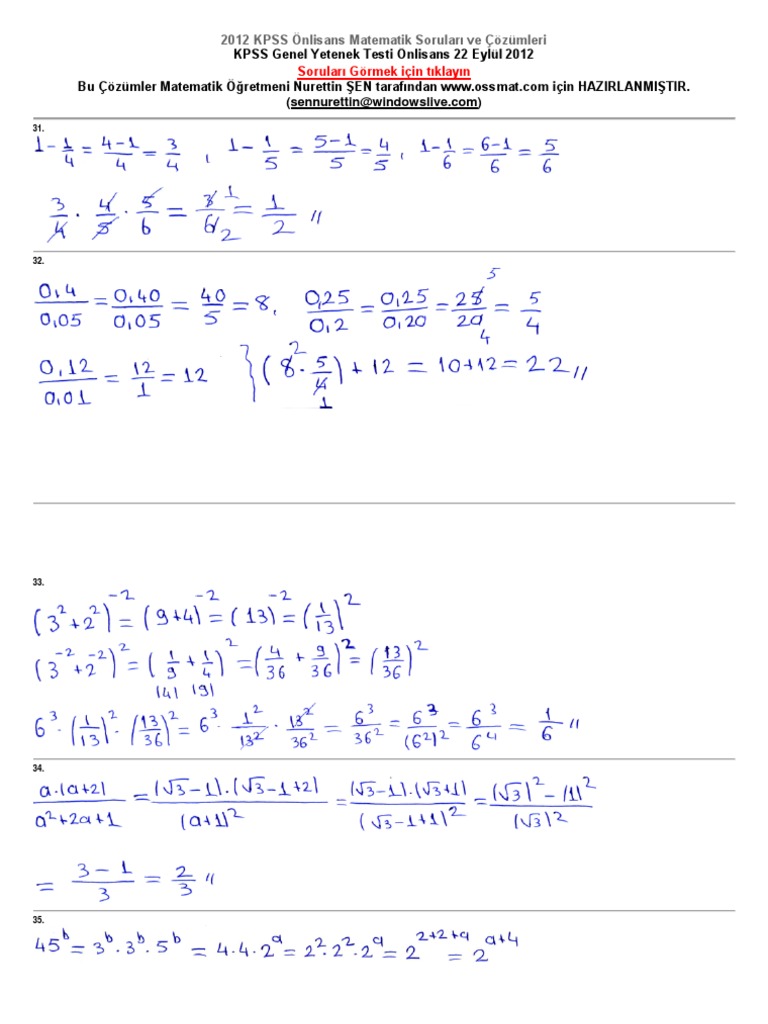 2012 KPSS Önlisans Matematik Soruları ve Çözümleri
KPSS Genel Yetenek Testi Onlisans 22 Eylül 2012
Soruları Görmek için tıklayın
Bu Çözümler Matematik Öğretmeni Nurettin ŞEN tarafından www.ossmat.com için HAZIRLANMIŞTIR.
(sennurettin@windowslive.com)
31.
1-1/4 = 4-1/4 = 3/4 , 1-1/5 = 5-1/5 = 4/5 , 1-1/6 = 6-1/6 = 5/6
3/4 . 4/5 . 5/6 = 3/6 1 2 = 1/2 //
32.
0,4/0,05 = 0,40/0,05 = 40/5 = 8, 0,25/0,2 = 0,25/0,20 = 25/20 5 4 = 5/4
0,12/0,01 = 12/1 = 12 } (8 2 . 5/4 1) + 12 = 10+12 = 22 //
33.
(3²+2²)⁻² = (9+4)⁻² = (13)⁻² = (1/13)²
(3⁻²+2⁻²)² = (1/9 + 1/4)² = (4/36 + 9/36)² = (13/36)²
(4) (9)
6³ . (1/13)² . (13/36)² = 6³ . 1²/13² . 13²/36² = 6³/36² = 6³/(6²)² = 6³/6⁴ = 1/6 //
34.
a.(a+2)/a²+2a+1 = (√3-1).(√3-1+2)/(a+1)² = (√3-1).(√3+1)/(√3-1+1)² = (√3)²-(1)²/(√3)²
= 3-1/3 = 2/3 //
35.
45ᵇ = 3ᵇ.3ᵇ.5ᵇ = 4.4.2ᵃ = 2².2².2ᵃ = 2²⁺²⁺ᵃ = 2ᵃ⁺⁴